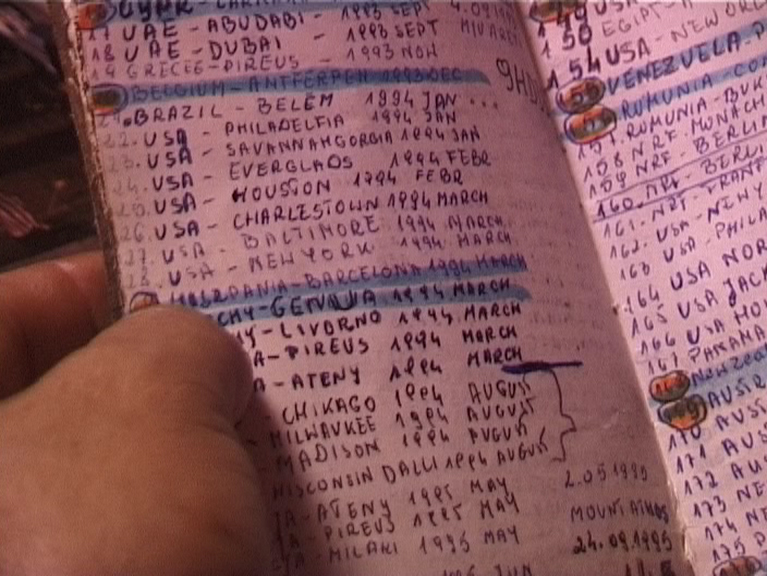 17 UAE - ABUDABI - 1993 SEPT
18 UAE - DUBAI - 1993 SEPT
19 GRECEE - PIREUS - 1993 NOW
BELGIUM - ANTFERPEN 1993 DEC
21. BRAZIL - BELÉM 1994 JAN ...
22. USA - PHILADELFIA 1994 JAN
23. USA - SAVANNAHGORGIA 1994 JAN
24. USA - EVERGLADS 1994 FEBR
25. USA - HOUSTON 1994 FEBR
26. USA - CHARLESTOWN 1994 MARCH
27. USA - BALTIMORE 1994 MARCH
28. USA - NEW YORK 1994 MARCH
HISZPANIA - BARCELONA 1994 MARCH
CHY - GENUA 1994 MARCH
HY - LIVORNO 1994 MARCH
A - PIREUS 1994 MARCH
A - ATENY 1994 MARCH
- CHIKAGO 1994 AUGUST
- MILWAUKEE 1994 AUGUST
- MADISON 1994 AUGUST
WISCONSIN DALLI 1994 AUGUST
A - ATENY 1995 MAY
A - PIREUS 1995 MAY
A - MILAKI 1995 MAY
2.05.1995
MOUNT ATHOS
24.09.1995
150 EGIPT - A
154 USA - NEW ORL
VENEZUELA - P
RUMUNIA - CO
157. RUMUNIA - BUK
158 NRF - MONACH
159 NRF - BERLIN
160. NRF - BERLI
161. NRF - FRANF
162. USA - NEW Y
163 USA - PHILA
164 USA NOR
165 USA JACK
166 USA MO
167. PANAMA
NEW ZEA
AUSTR
170 AUST
171 AUS
172 AUS
173 NE
174 NE
175 P